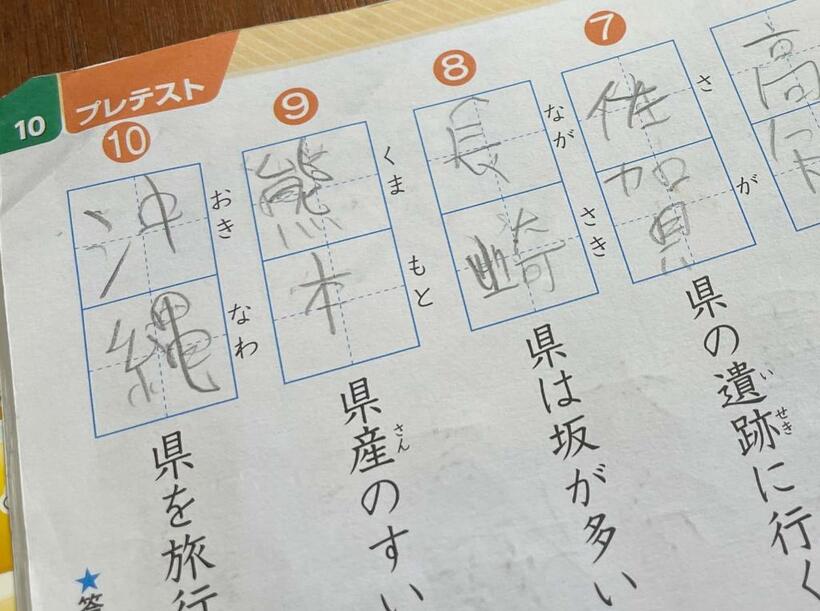 高
7
佐賀
さが
県の遺跡に行く
いせき
8
長崎
ながさき
県は坂が多い
9
熊本
くまもと
県産のすい
さん
10
沖縄
おきなわ
県を旅行
プレテスト
10
★答